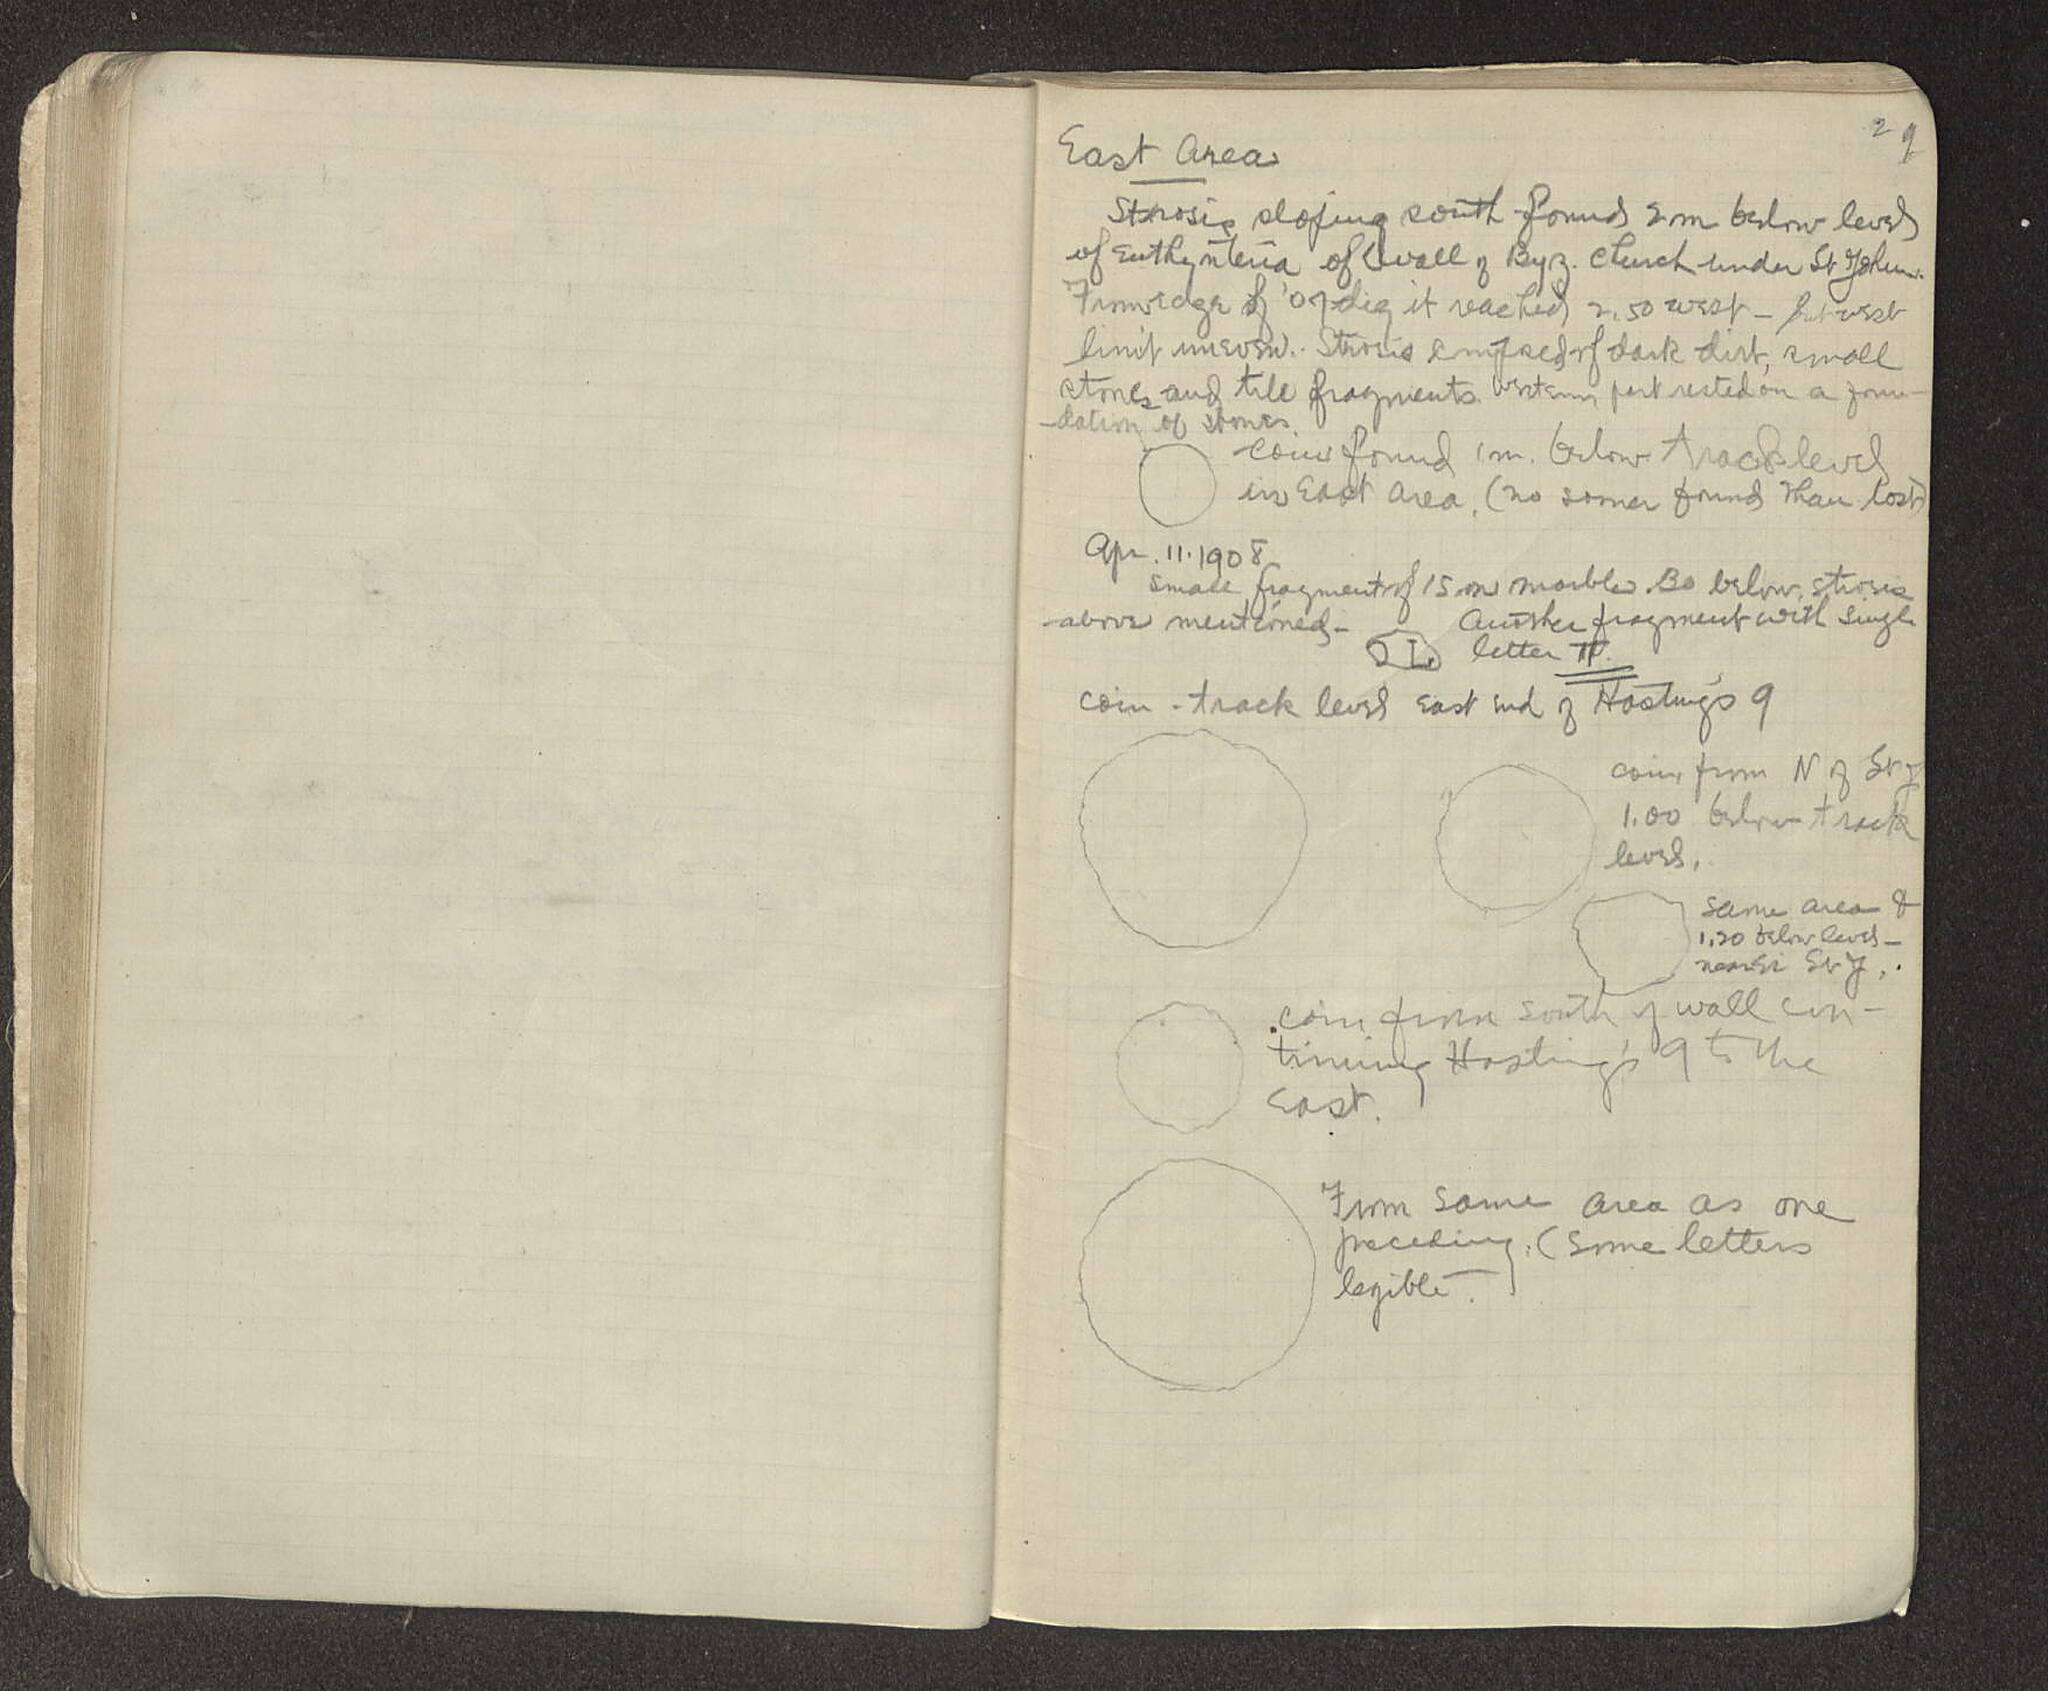 29
East Area
Strosis sloping south found 2m below level
of Euthynteria of wall of Byz. Church under St John.
From edge of '07 dig it reached 2.50 west - but west
limit uneven. Strosis composed of dark dirt, small
stones and tile fragments. Western part rested on a foun-
-dation of stones.
coin found 1m. below track level
in East Area. (no sooner found than lost)
Apr. 11. 1908
Small fragment of IS on marble .80 below strosis
above mentioned - Another fragment with single
letter Π.
coin - track level east end of Hastings 9
coin from N of St J
1.00 below track
level.
same area &
1.20 below level -
nearer St J.
coin from south of wall con-
tinuing Hastings 9 to the
East.
From same area as one
preceding. (Some letters
legible.)